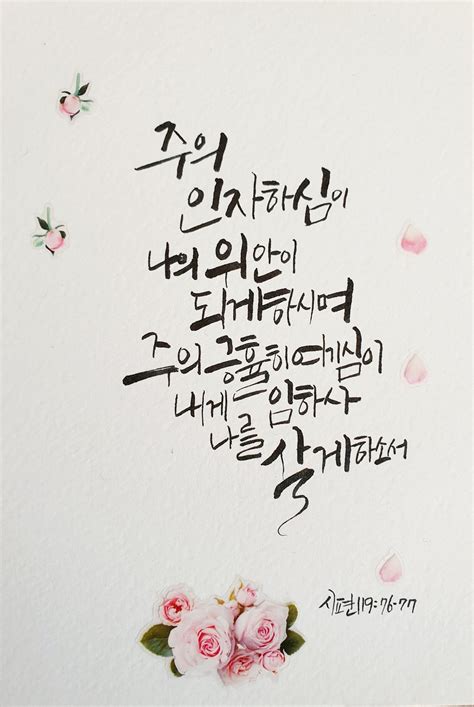 주의
인자하심이
나의 위안이
되게하시며
주의 긍휼히여기심이
내게 임하사
나를
살게하소서
시편119:76-77